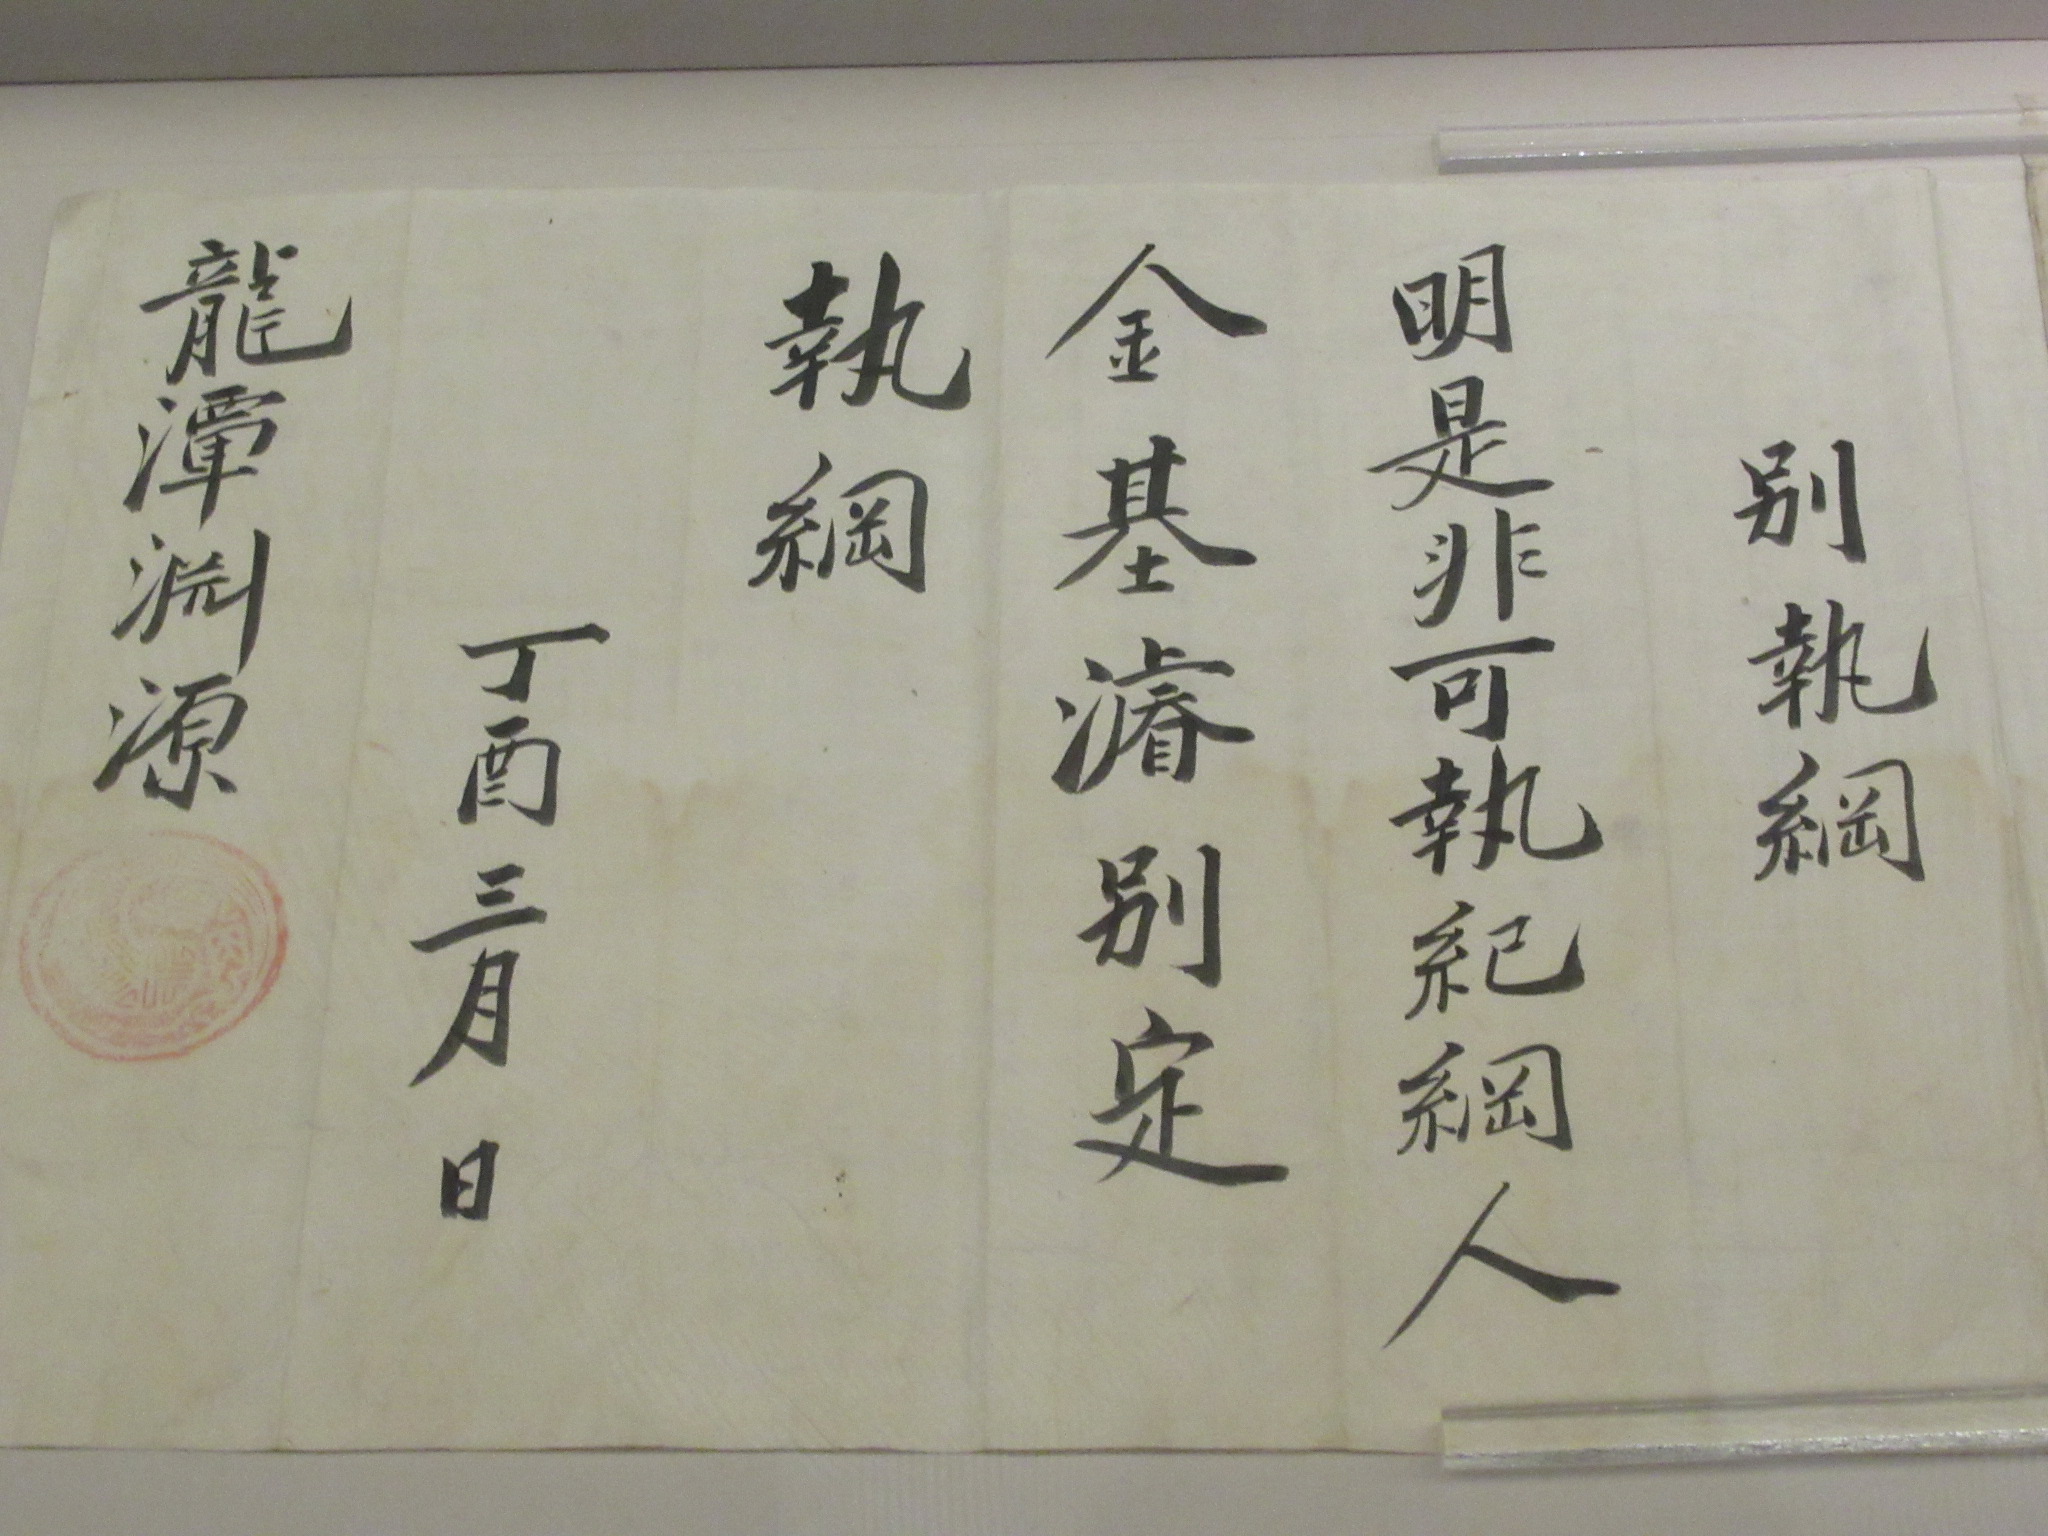 別執綱
明是非可執紀綱人
金基濬別定
執綱
丁酉三月日
龍潭淵源